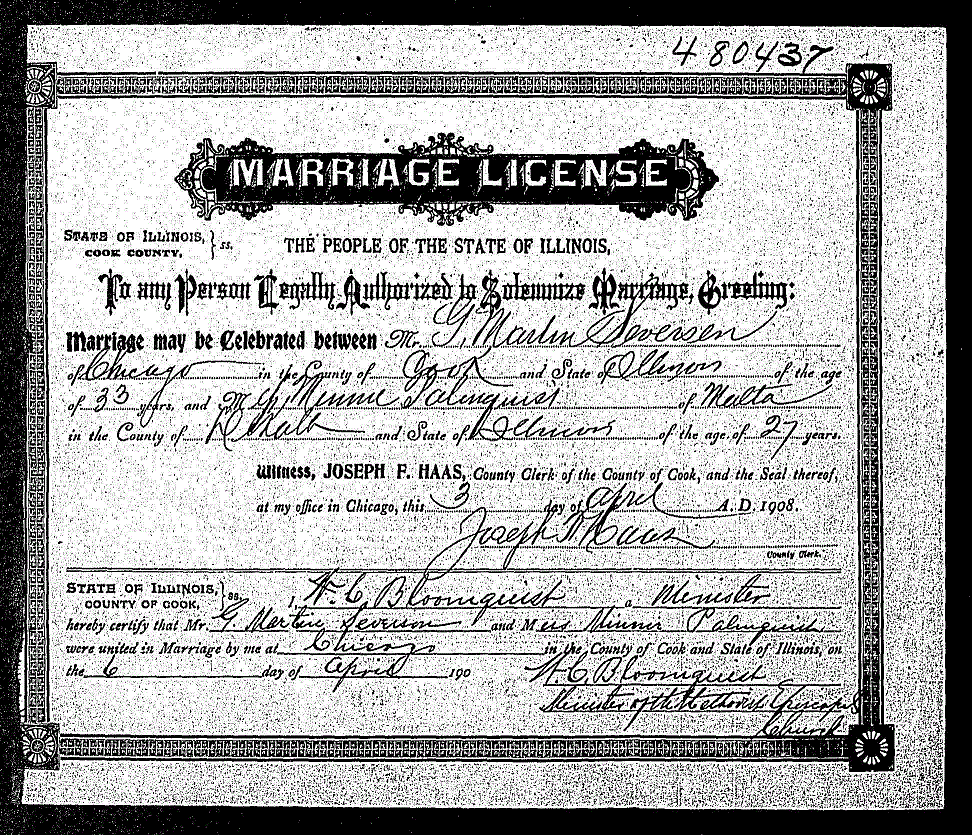 480437
MARRIAGE LICENSE
STATE OF ILLINOIS,
COOK COUNTY, } ss.
THE PEOPLE OF THE STATE OF ILLINOIS,
To any Person Legally Authorized to Solemnize Marriage, Greeting:
Marriage may be Celebrated between Mr. G. Martin Seversen
of Chicago in the County of Cook and State of Illinois of the age
of 33 years, and M Minnie Palmquist of Malta
in the County of DeKalb and State of Illinois of the age of 27 years.
Witness, JOSEPH F. HAAS, County Clerk of the County of Cook, and the Seal thereof,
at my office in Chicago, this 3 day of April A. D. 1908.
Joseph F. Haas
County Clerk.
STATE OF ILLINOIS,
COUNTY OF COOK, } ss. I, W. C. Bloomquist a Minister
hereby certify that Mr. G. Martin Severson and Miss Minnie Palmquist
were united in Marriage by me at Chicago in the County of Cook and State of Illinois, on
the 6 day of April 190
W. C. Bloomquist
Minister of the Methodist Episcopal
Church